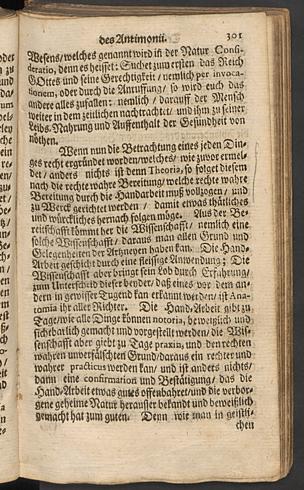 des Antimonii. 301
Wesens/welches genannt wird in der Natur Consi-
deratio, denn es heisset: Suchet zum ersten das Reich
GOttes und seine Gerechtigkeit/ nemlich per invoca-
tionem, oder durch die Anruffung/ so wird euch das
andere alles zufallen: nemlich/ darauff der Mensch
weiter in dem zeitlichen nachtrachtet/ und ihm zu seiner
Leibs Nahrung und Auffenthalt der Gesundheit von
nöthen.
Wenn nun die Betrachtung eines jeden Din-
ges recht ergründet worden/welches/ wie zuvor ermel-
det/ anders nichts ist denn Theoria, so folget diesem
nach die rechte wahre Bereitung/ welche rechte wahre
Bereitung durch die Handarbeit muß vollzogen/ und
zu Werck gerichtet werden/ damit etwas thätliches
und würckliches hernach folgen möge. Aus der Be-
reitschafft kömmt her die Wissenschafft/ nemlich eine
solche Wissenschafft/ daraus man allen Grund und
Gelegenheiten der Artzneyen haben kan. Die Hand-
Arbeit geschicht durch eine fleissige Anwendung; Die
Wissenschafft aber bringt sein Lob durch Erfahrung/
zum Unterscheid dieser beyder/ daß eines vor dem an-
dern in gewisser Tugend kan erkannt werden/ ist Ana-
tomia ihr aller Richter. Die Hand-Arbeit gibt zu
Tage/wie alle Dinge können notoria, beweißlich und
sichtbarlich gemacht und vorgestellet werden/ die Wis-
senschafft aber giebt zu Tage praxin, und den rechten
wahren unverfälschten Grund/daraus ein rechter und
wahrer practicus werden kan/ und ist anders nichts/
dann eine confirmation und Bestätigung/ das die
Hand-Arbeit etwas gutes offenbahret/und die verbor-
gene geheime Natur herausser bekandt und beweißlich
gemacht hat zum guten. Denn wie man in geistli-
chen